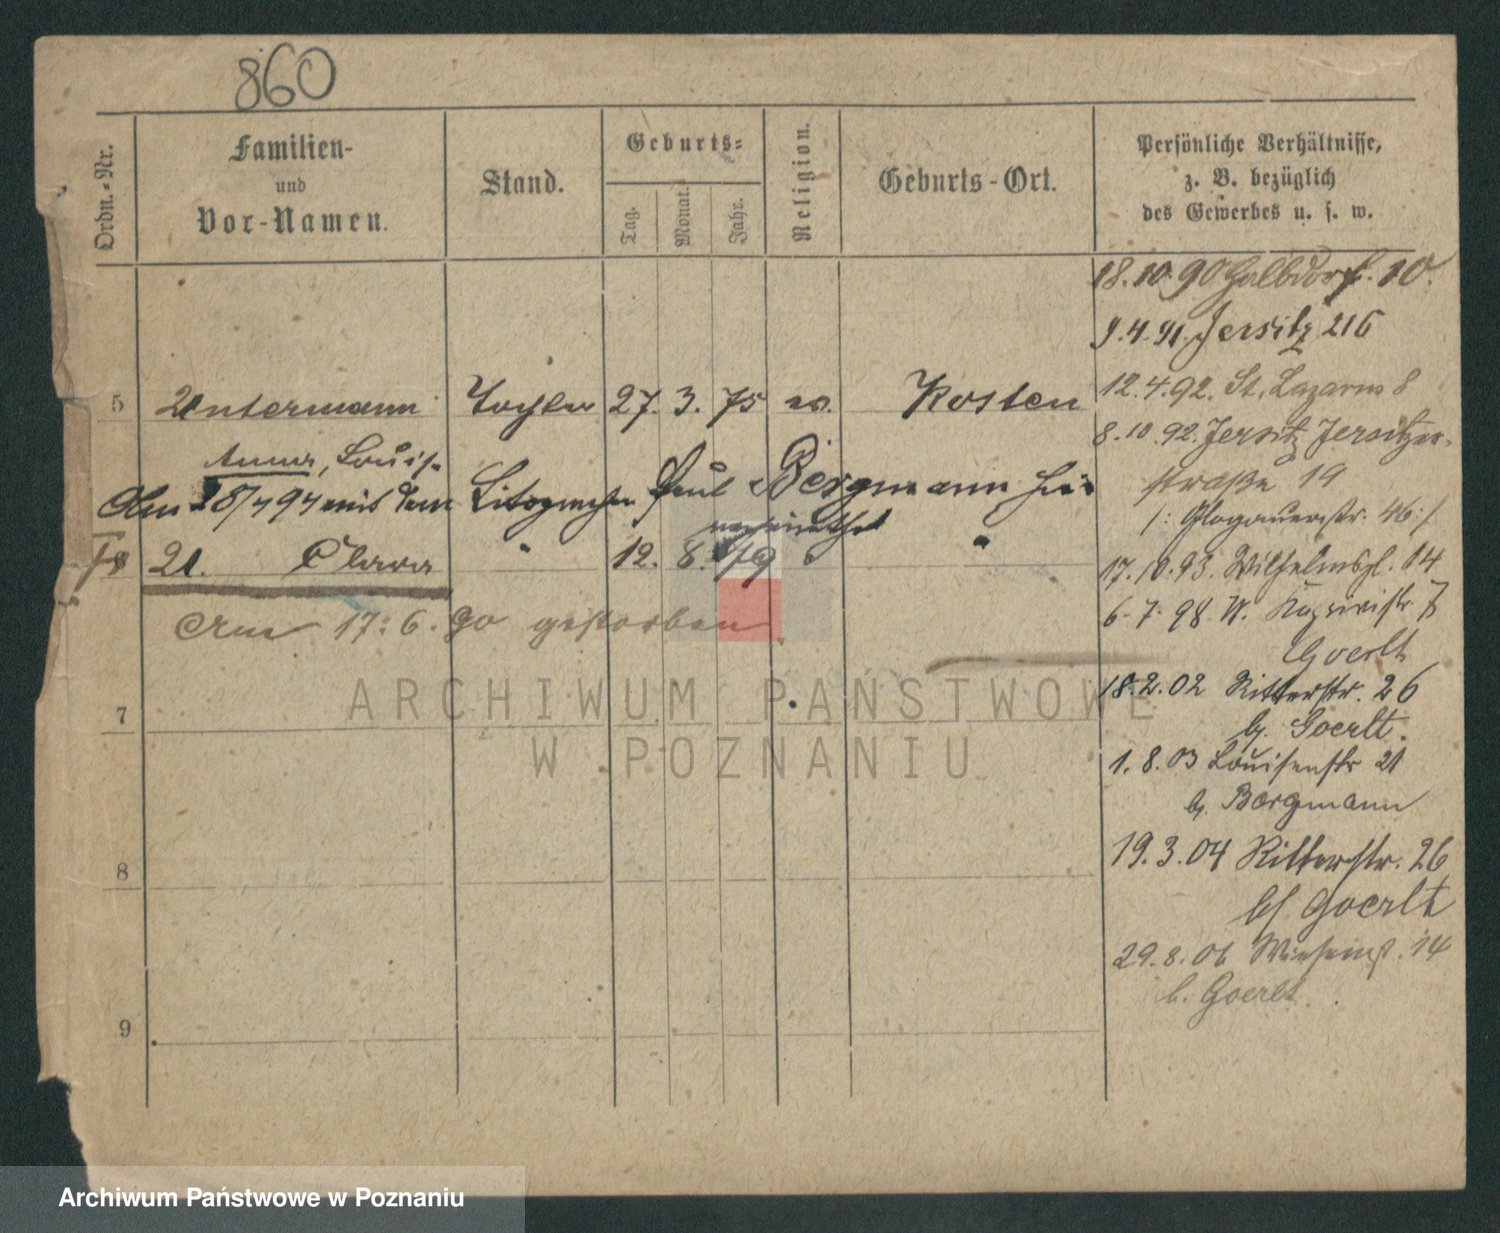 860
Ordn.-Nr.
Familien-
und
Vor-Namen.
Stand.
Geburts-
Tag.
Monat.
Jahr.
Religion.
Geburts-Ort.
Persönliche Verhältnisse,
z. B. bezüglich
des Gewerbes u. s. w.
18.10.90 Halbdorfst. 10.
9.4.91. Jersitz 216
5 Untermann Tochter 27. 3. 75 ev. Kosten
12.4.92. St. Lazarus 8
8.10.92. Jersitz Jersitzer-
straße 19
Anna, Louise
Am 28/7 97 mit dem Litographen Paul Bergmann hier
verheirathet
/: Glogauerstr. 46 :/
U. Clara " 12. 8. 79 "
17.10.93. Wilhelmspl. 14
Am 17.6.90 gestorben
6.7.98 W. 7
Goerlt
18.2.02 Ritterstr. 26
b. Goerlt.
7
1.8.03 Louisenstr 21
b. Bergmann
19.3.04 Ritterstr. 26
8
b/ Goerlt
29.8.06 Wiesenst. 14
b. Goerlt.
9
ARCHIWUM PAŃSTWOWE
W POZNANIU
Archiwum Państwowe w Poznaniu